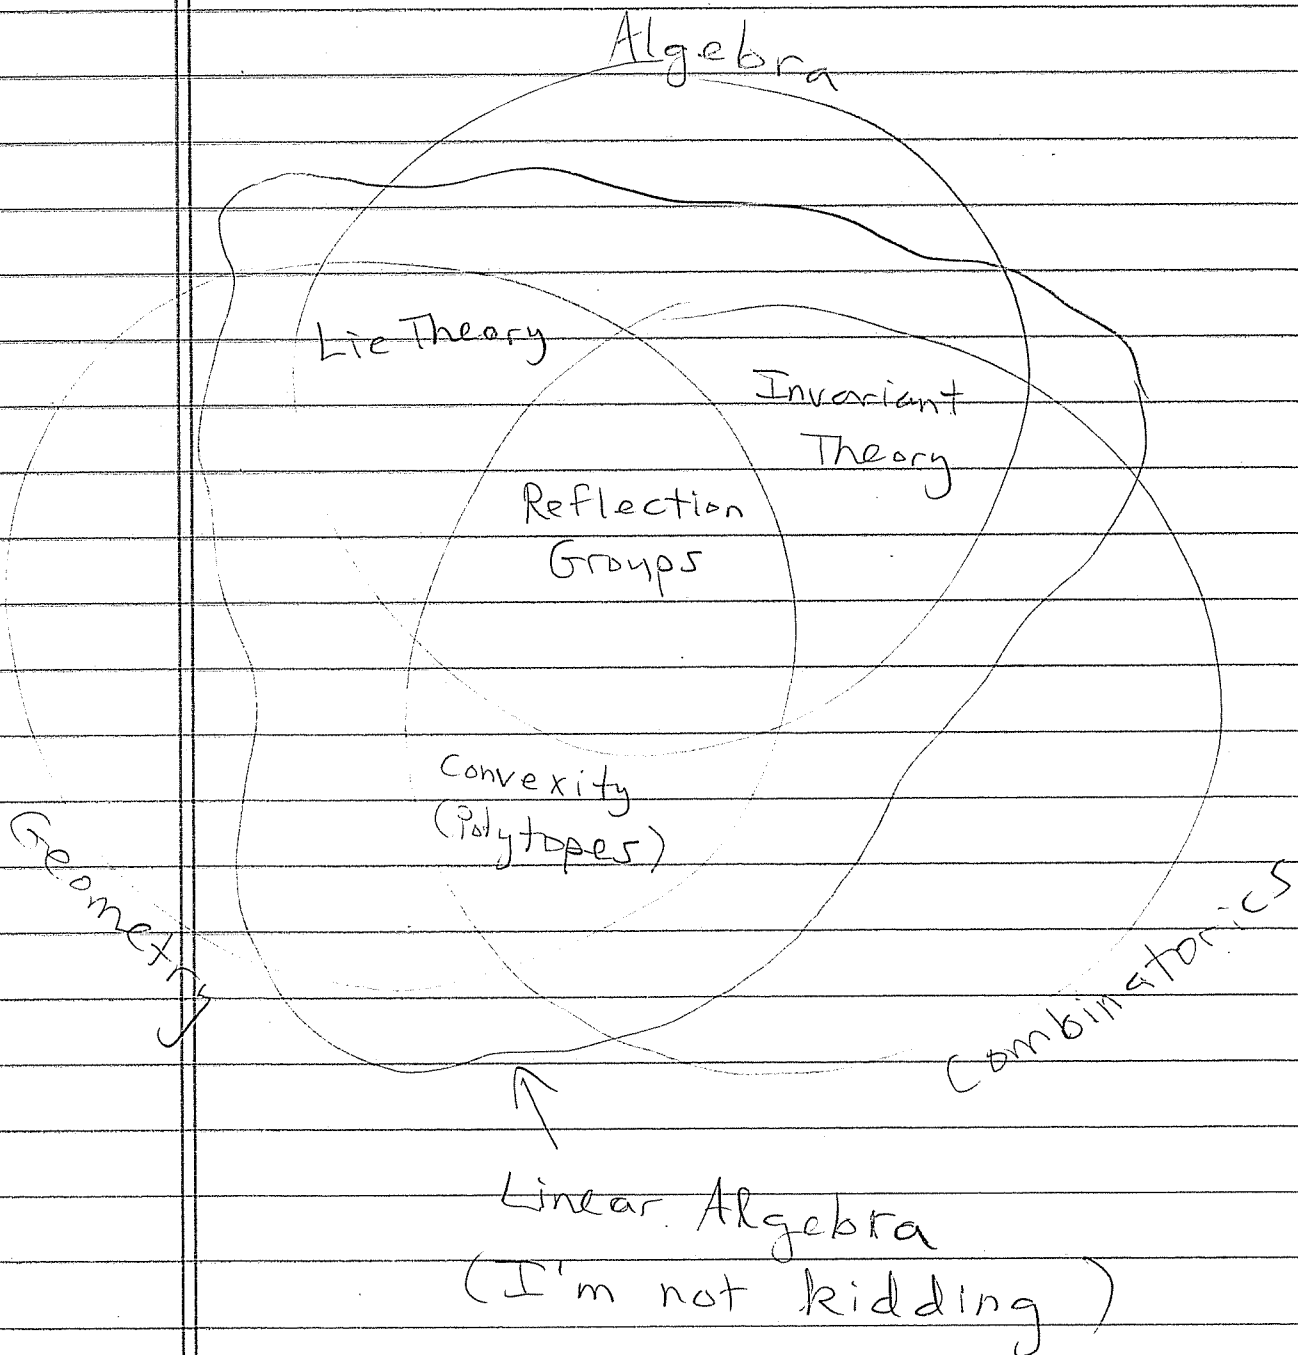 Algebra
Lie Theory
Invariant
Theory
Reflection
Groups
Convexity
(Polytopes)
Geometry
Combinatorics
Linear Algebra
(I'm not kidding)